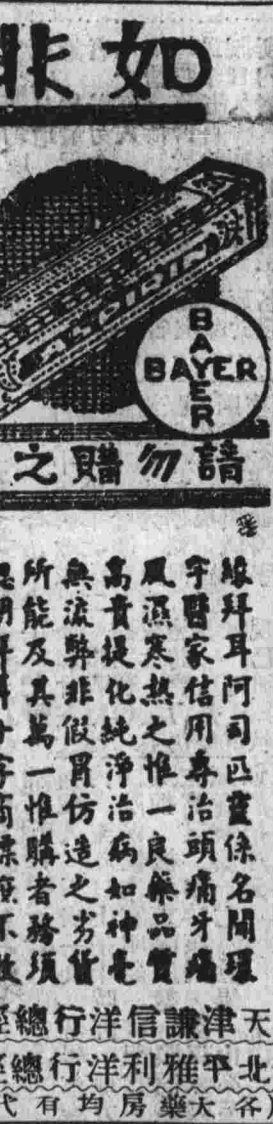 如非
ASPIRIN
BAYER
BAYER
請勿購之
緣拜耳阿司匹靈係名聞環
宇醫家信用專治頭痛牙痛
風濕寒熱之惟一良藥品質
高貴提化純淨治病如神毫
無流弊非假冒仿造之劣貨
所能及其萬一惟購者務須
天津謙信洋行總經
北平雅利洋行總經
各大藥房均有代